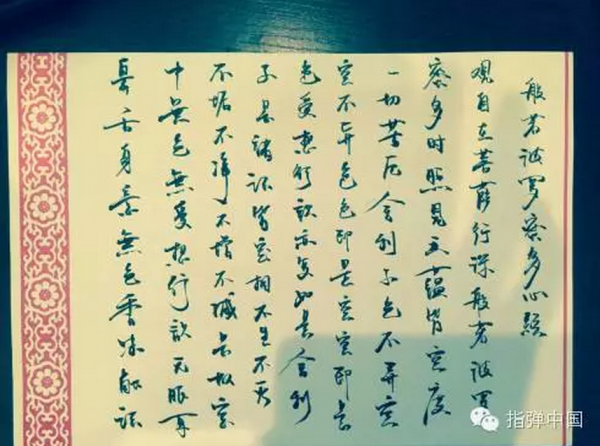 般若波罗蜜多心经
观自在菩萨行深般若波罗
蜜多时照见五蕴皆空度
一切苦厄舍利子色不异空
空不异色色即是空空即是
色受想行识亦复如是舍利
子是诸法皆空相不生不灭
不垢不净不增不减是故空
中無色無受想行识无眼耳
鼻舌身意無色香味触法
指弹中国